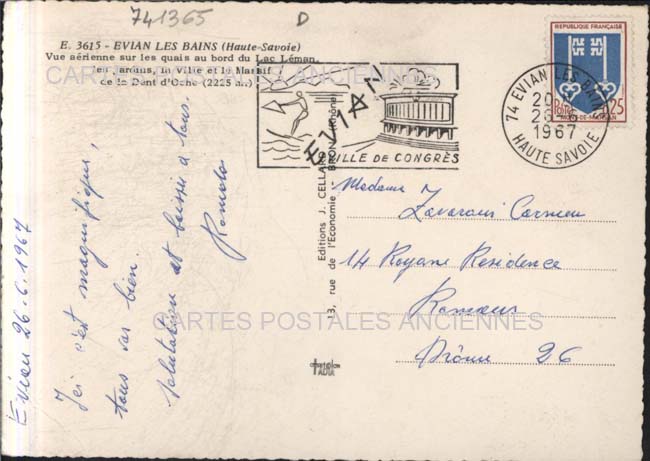 741365
D
E. 3615 - EVIAN LES BAINS (Haute-Savoie)
Vue aérienne sur les quais au bord du Lac Léman,
les Jardins, la Ville et le Massif
de la Dent d'Oche (2225 m.)
CARTES POSTALES ANCIENNES
EVIAN
VILLE DE CONGRÈS
REPUBLIQUE FRANÇAISE
MONT-DE-MARSAN
74 EVIAN LES BAINS
20
26
1967
HAUTE SAVOIE
Editions J. CELLARD
13, rue de l'Economie BRON (Rhône)
Evian 26.6.1967
Ici c'est magnifique,
tous bien.
salutation et baisers à tous.
Madame
14 Royans Residence
Romans
Drôme 26
CARTES POSTALES ANCIENNES